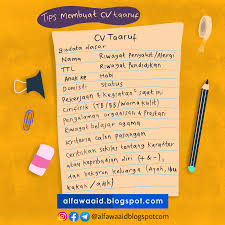 Tips Membuat CV taaruf
CV Taaruf
Biodata dasar
Nama Riwayat Penyakit/Alergi
TTL Riwayat Pendidikan
Anak ke Hobi
Domisili Status
Pekerjaan & kegiatan saat ini
Ciri Fisik (TB/BB/Warna kulit)
Pengalaman organisasi/Prestasi
Riwayat belajar agama
Kriteria calon pasangan
Ceritakan sekilas tentang karakter
atau kepribadian diri (+ & -),
dan background keluarga (Ayah, Ibu
kakak / adik)
alfawaaid.blogspot.com
@alfawaaidblogspotcom